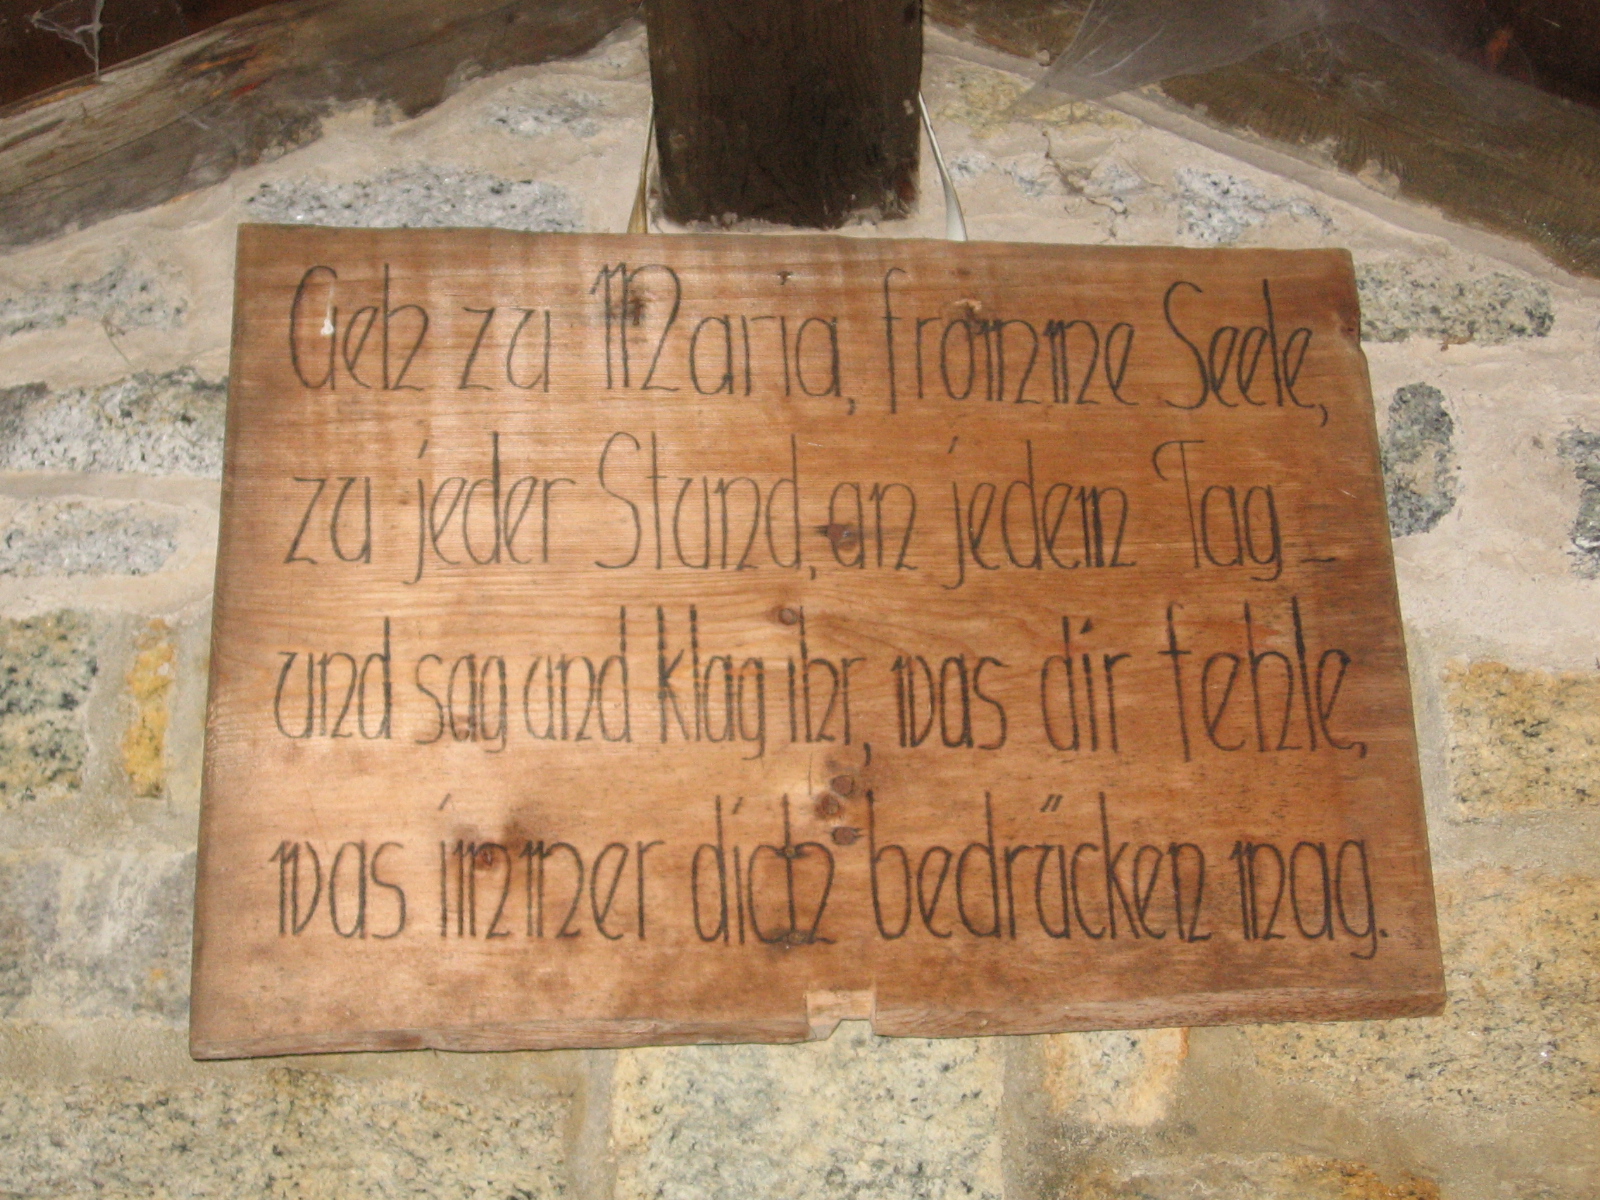 Geh zu Maria, fromme Seele,
zu jeder Stund, an jedem Tag –
und sag und klag ihr, was dir fehle,
was immer dich bedrücken mag.